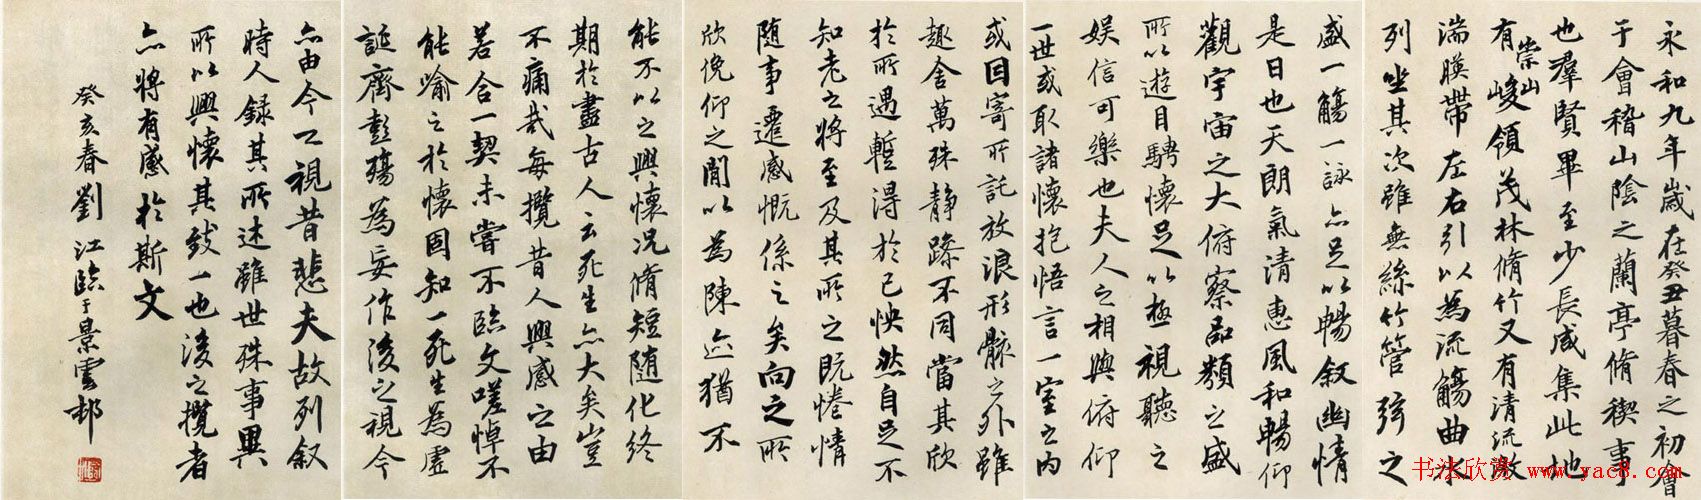 永和九年歲在癸丑暮春之初會
于會稽山陰之蘭亭脩稧事
也羣賢畢至少長咸集此地
有崇山峻領茂林脩竹又有清流激
湍暎帶左右引以為流觴曲水
列坐其次雖無絲竹管弦之
盛一觴一詠亦足以暢叙幽情
是日也天朗氣清惠風和暢仰
觀宇宙之大俯察品類之盛
所以遊目騁懷足以極視聽之
娛信可樂也夫人之相與俯仰
一世或取諸懷抱悟言一室之內
或因寄所託放浪形骸之外雖
趣舍萬殊静躁不同當其欣
於所遇暫得於己怏然自足不
知老之將至及其所之既惓情
随事遷感慨係之矣向之所
欣俛仰之閒以為陳迹猶不
能不以之興懷況脩短随化終
期於盡古人云死生亦大矣豈
不痛哉每攬昔人興感之由
若合一契未嘗不臨文嗟悼不
能喻之於懷固知一死生為虛
誕齊彭殤為妄作後之視今
亦由今之視昔悲夫故列叙
時人録其所述雖世殊事異
所以興懷其致一也後之攬者
亦將有感於斯文
癸亥春劉江臨于景雲邨
书法欣赏 www.yac8.com